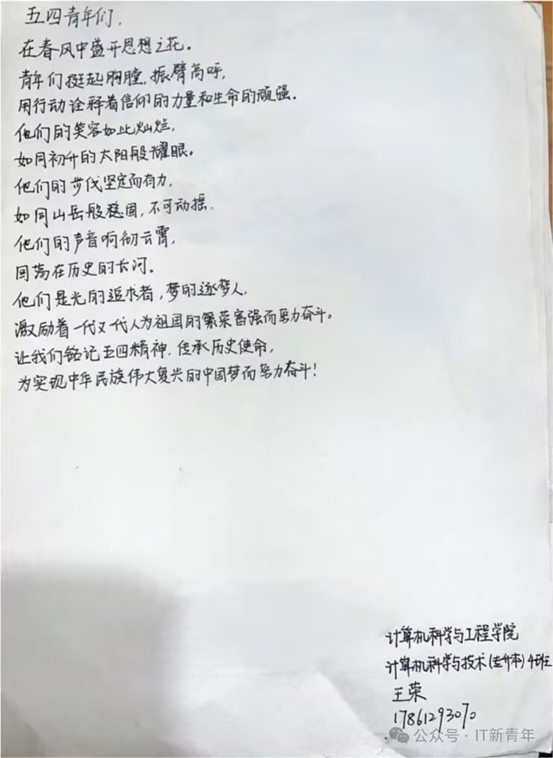 五四青年们,
在春风中盛开思想之花。
青年们挺起胸膛,振臂高呼,
用行动诠释着信仰的力量和生命的顽强。
他们的笑容如此灿烂,
如同初升的太阳般耀眼。
他们的步伐坚定而有力,
如同山岳般稳固,不可动摇.
他们的声音响彻云霄,
回荡在历史的长河。
他们是光的追求者,梦的逐梦人,
激励着一代又一代人为祖国的繁荣富强而努力奋斗。
让我们铭记五四精神,传承历史使命,
为实现中华民族伟大复兴的中国梦而努力奋斗!
计算机科学与工程学院
计算机科学与技术(专升本)4班
王荣
17861293070
公众号·IT新青年